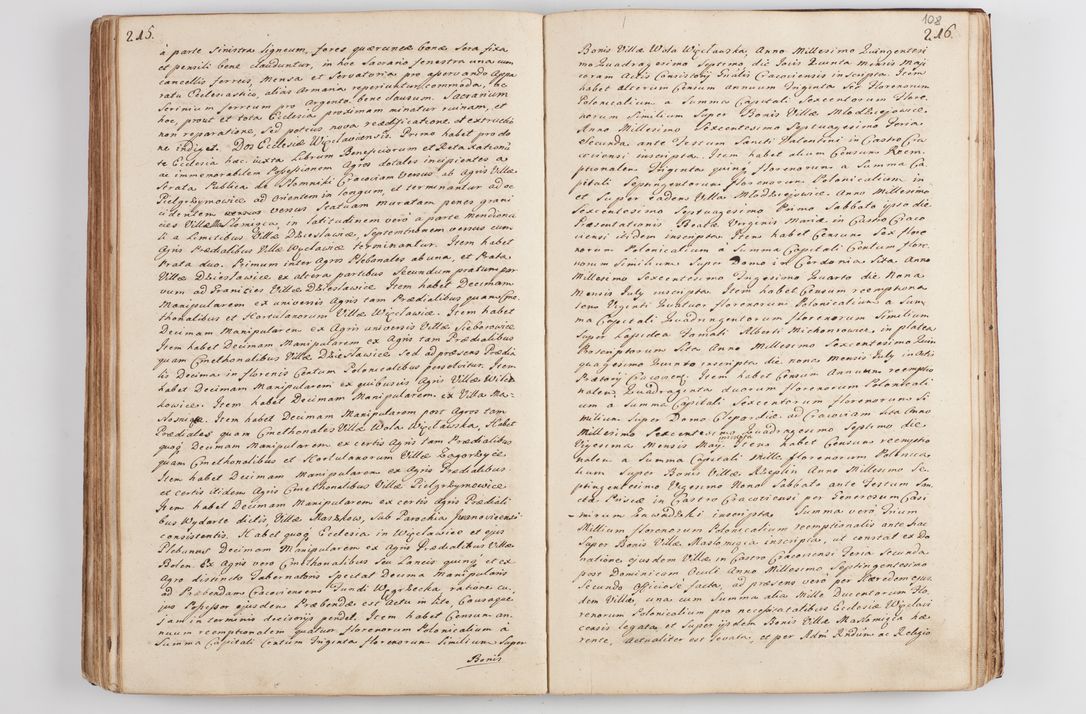 215.
à parte sinistra ligneum, fores quæcunque bonæ sera fixa
et pensili bene clauduntur, in hoc Sacrario fenestra una cum
cancellis ferreis, Mensa et Servatoria pro asservando Appa
ratu Ecclesiastico, alias Armaria reperiuntur commoda, ac
Scrinium ferreum pro Argento bene clausum. Sacrarium
hoc, prout et tota Ecclesia proximam minatur ruinam, et
non reparatione, sed potius nova reædificatione et extructio
ne indiget. Dos Ecclesiæ Więclaviensis. Primo habet pro do
te Ecclesia hæc iuxta Librum Beneficiorum et Retaxationis
ac immemorabilem Possessionem Agros dotales incipientes a
Strata Publica de Słomniki Cracoviam versus ab Agris Villæ
Pielgrzymowice ad Orientem in longum, et terminantur ad oc
cidentem versus Statuam muratam penes grani
cies Villæ Maslomiąca, in latitudinem verò à parte Meridiona
li a Limitibus Villæ Dzieslawice, Septentrionem versus cum
Agris Prædialibus Villæ Więclawice terminantur. Item habet
Prata duo. Primum inter Agros Plebanales ab una, et Prata
Villæ Dzieslawice ex altera partibus Secundum pratum par
vum ad Granities Villæ Dzieslawice Item habet Decimam
Manipularem ex universis Agris tam Prædialibus quam Cme
thonalibus et Hortulanorum Villæ Więclawice. Item habet
Decimam Manipularem ex Agris universis Villæ Sieborowice
Item habet Decimam Manipularem ex Agris tam Prædialibus
quam Cmethonalibus Villæ Dzieslawice sed ad præsens Prædia
lis Decima in florenis Centum Polonicalibus persolvitur. Item
habet Decimam Manipularem ex quibusvis Agris Villæ Wilcz
kowice. Item habet Decimam Manipularem ex Villa Ma-
slomiąca. Item habet Decimam Manipularem post Agros tam
Prædiales quam Cmethonales Villæ Wola Więclawska, Habet
quoque Decimam Manipularem ex certis Agris tam Prædialibus
quam Cmethonalibus et Hortulanorum Villæ Zagorzyce
Item habet Decimam Manipularem ex Agris Prædialibus
et certis itidem Agris Cmethonalibus Villæ Pielgrzymowice
Item habet Decimam Manipularem ex certis Agris Prædiali
bus Wydarte dictis Villæ Marszkow, sub Parochia Iwanoviciensi
consistentis. Habet quoque Ecclesia in Więclawice et ejus
Plebanus Decimam Manipularem ex Agris Prædialibus Villæ
Bolen. Ex Agris vero Cmethonalibus seu Laneis quinque et ex
Agro distincto Tabernatoris spectat Decima Manipularis
ad Præbendam Cracoviensem Fundi Węgrzecka ratione cu
jus Possessor ejusdem Præbendæ est Actu in Lite, Causaque
jam in terminis decisoriis pendet. Item habet Censum an
nuum reemptionalem quatuor florenorum Polonicalium à
Summa Capitali Centum Triginta florenorum similium super
Bonis

108
216.
Bonis Villæ Wola Więclawska, Anno Millesimo Quingentesi
mo Quadragesimo Septimo die Iovis Quinta Mensis Maji
coram Actis Consistorij Gñalis Cracoviensis inscripta. Item
habet alterum Censum annuum Triginta Sex Florenorum
Polonicalium a Summa Capitali Sexcentorum flore
norum similium super Bonis Villæ Mlodziejowice,
Anno Millesimo Sexcentesimo Septuagesimo Feria
Secunda ante Festum Sancti Valentini in Castro Cra
coviensi inscripta. Item habet alium Censum Reem
ptionalem Triginta quinque florenorum a Summa Ca
pitali Septingentorum florenorum Polonicalium in
et super eadem Villa Mlodziejowice. Anno Millesimo
Sexcentesimo Septuagesimo Primo Sabbato ipso die
Præsentationis Beatæ Virginis Mariæ in Castro Craco
viensi itidem inscripta. Item habet Censum Sex flore
norum Polonicalium a Summa Capitali Centum flore
norum similium super Domo in Cerdonia sita Anno
Millesimo Sexcentesimo Trigesimo Quarto die Nona
Mensis July inscripta. Item habet Censum reemptiona
lem Viginti Quatuor florenorum Polonicalium a Sum
ma Capitali Quadringentorum florenorum similium
super lapidea Famati Alberti Michonowicz, in platea
Rosciptorum sita Anno Millesimo Sexcentesimo Quin
quagesimo Quarto inscripta die nona Mensis July in Actis
Prætorij Cracovien. Item habet Censum Annuum reemptio
nalem Quadraginta duorum florenorum Polonicali
um a Summa Capitali Sexcentorum florenorum Si
milium super Domo Cleparđiæ ad Cracoviam sita Anno
Millesimo Sexcentesimo Quadragesimo Septimo die
Vigesima Mensis May inscripta Item habet Censum reemptio
nalem a Summa Capitali Mille florenorum Polonica
lium super Bonis Villæ Rzeplin Anno Millesimo Se
ptingentesimo Vigesimo Nono Sabbato ante Festum San
ctæ Priscæ in Castro Cracoviensi per Generosum Casi
mirum Zawadzki inscripta Summa verò Trium
Millium florenorum Polonicalium reemptionalis ante hac
super Bonis Villæ Maslomiąca inscripta, ut constat ex Do
natione ejusdem Villæ in Castro Cracoviensi Feria Secunda
post Dominicam Oculi Anno Millesimo Septingentesimo
Secundo officiosè facta, ad præsens vero per Hæredem ejus
dem Villæ, una cum Summa alia Mille Ducentorum Flo
renorum Polonicalium pro necessitatibus Ecclesiæ Więclavi
censis legata et super ijsdem Bonis Villæ Maslomiąca hæ
rente, actualiter est levata, et per Adm. Rndum ac Religio